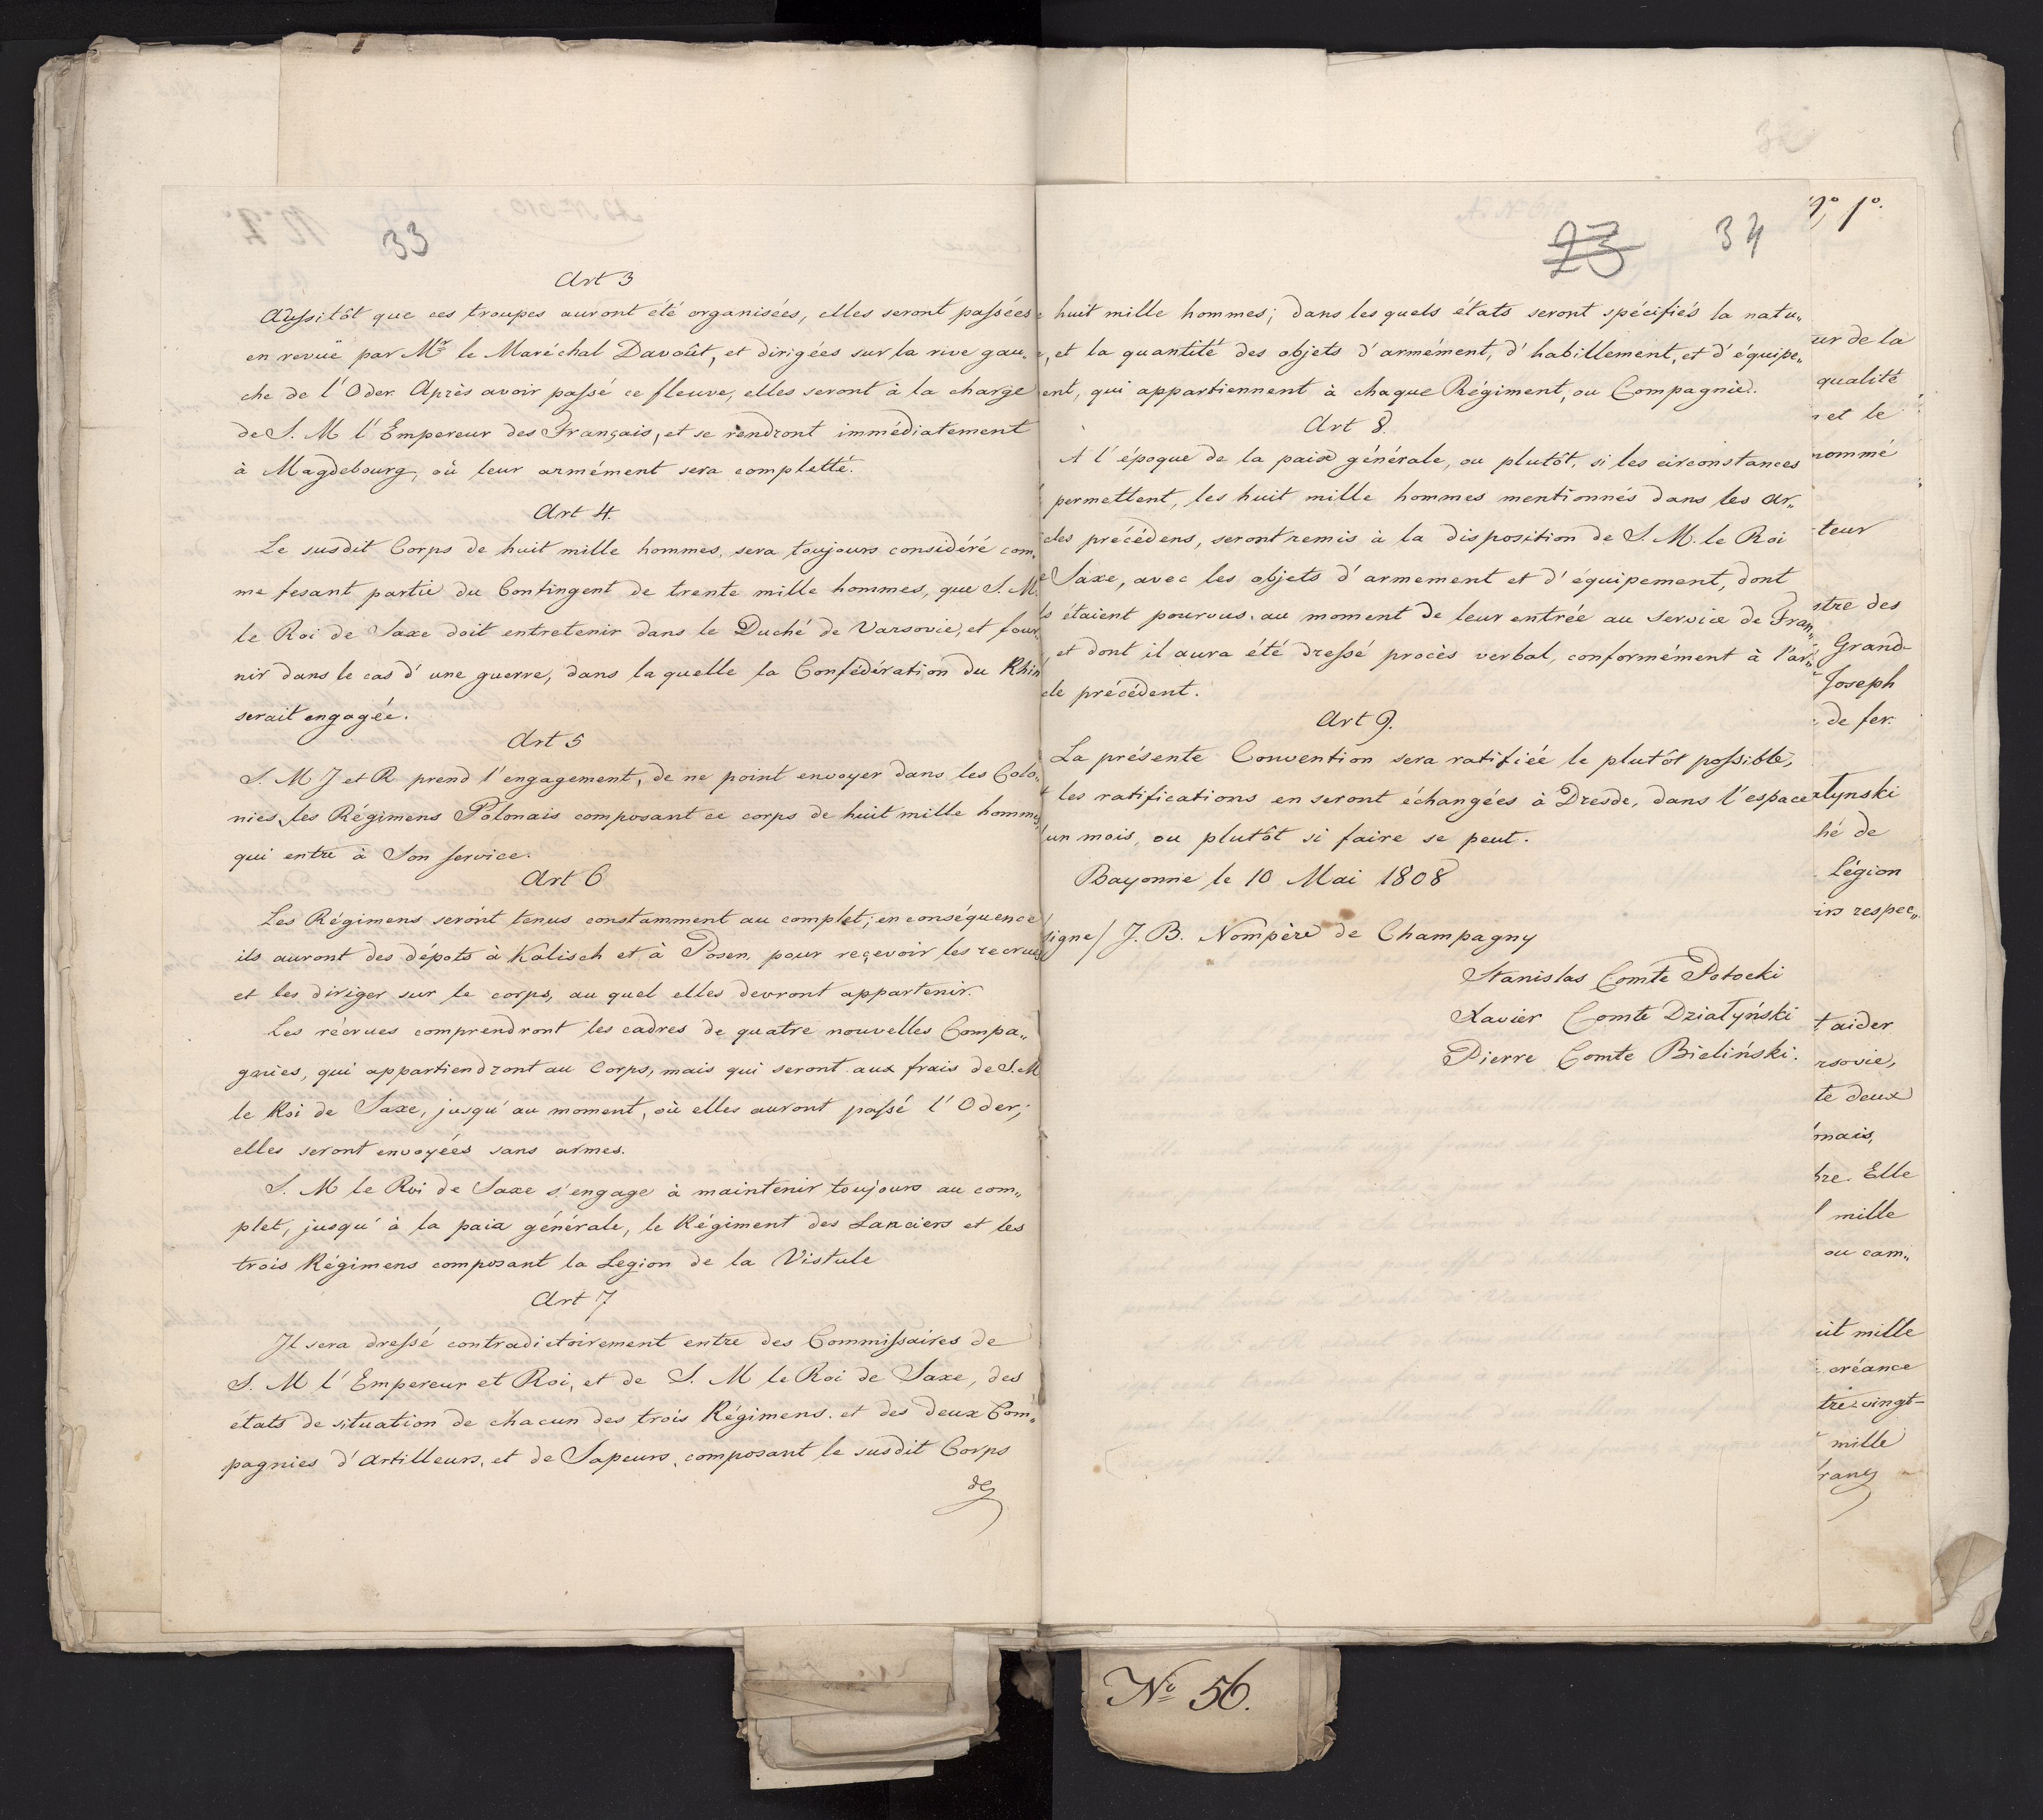 33
Art 3
Aussitôt que ces troupes auront été organisées, elles seront passées
en revuë par Mr le Maréchal Davoût, et dirigées sur la rive gau„
che de l'Oder. Après avoir passé ce fleuve, elles seront à la charge
de S. M l'Empereur des Français, et se rendront immédiatement
à Magdebourg, où leur armément sera completté.
Art 4.
Le susdit Corps de huit mille hommes, sera toujours considéré com„
me fesant partie du Contingent de trente mille hommes, que S. M.
le Roi de Saxe doit entretenir dans le Duché de Varsovie, et four„
nir dans le cas d'une guerre, dans laquelle la Confédération du Rhin
serait engagée.
Art 5
S. M J et R prend l'engagement, de ne point envoyer dans les Colo„
nies, les Régimens Polonais composant ce corps de huit mille hommes,
qui entre à Son service.
Art 6
Les Régimens seront tenus constamment au complet; en conséquence
ils auront des dépots à Kalisch et à Posen, pour reçevoir les recrues
et les diriger sur le corps, au quel elles devront appartenir.
Les récrues comprendront les cadres de quatre nouvelles Compa„
gnies, qui appartiendront au Corps, mais qui seront aux frais de S. M
le Roi de Saxe, jusqu'au moment, où elles auront passé l'Oder;
elles seront envoyées sans armes.
S. M le Roi de Saxe s'engage à maintenir toujours au com„
plet, jusqu'à la paix générale, le Régiment des Lanciers et les
trois Régimens composant la Legion de la Vistule
Art 7
Il sera dressé contradictoirement entre des Commissaires de
S. M l'Empereur et Roi, et de S. M le Roi de Saxe, des
états de situation de chacun des trois Régimens. et des deux Com„
pagnies d'Artilleurs, et de Sapeurs, composant le susdit Corps
de
23 34
huit mille hommes; dans les quels états seront spécifiés la natu„
, et la quantité des objets d'armément, d'habillement, et d'équipe„
ent, qui appartiennent à chaque Régiment, ou Compagnie.
Art 8.
A l'époque de la paix générale, ou plutôt, si les circonstances
permettent, les huit mille hommes mentionnés dans les ar„
cles précédens, seront remis à la disposition de S. M. le Roi
Saxe, avec les objets d'armement et d'équipement, dont
ls étaient pourvus au moment de leur entrée au service de Fran„
et dont il aura été dressé procès verbal, conformément à l'ar„
cle précédent.
Art 9.
La présente Convention sera ratifiée le plutôt possible,
t les ratifications en seront échangées à Dresde, dans l'espace
'un mois, ou plutôt si faire se peut.
Bayonne le 10 Mai 1808
signe/ J. B. Nompère de Champagny
Stanislas Comte Potocki
Xavier Comte Dziatyński
Pierre Comte Bieliński.
1º.
ur de la
qualité
et le
nommé
teur
stre des
Grand-
Joseph
de fer.
tynski
hé de
Légion
irs respec„
t aider
rsovie,
te deux
onais,
bre. Elle
mille
ou cam„
uit mille
créance
tre-vingt-
mille
francs
Nº 56.